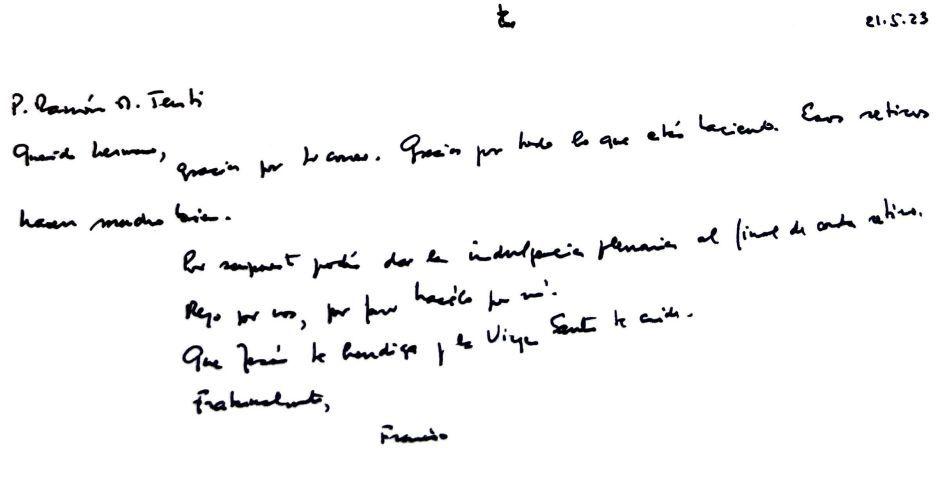 21.5.23
P. Ramón A. Tenti
Querido hermano,
gracias por tu correo. Gracias por todo lo que estás haciendo. Esos retiros
hacen mucho bien.
Por supuesto podés dar la indulgencia plenaria al final de cada retiro.
Rezo por vos, por favor hacélo por mí.
Que Jesús te bendiga y la Virgen Santa te cuide.
Fraternalmente,
Francisco